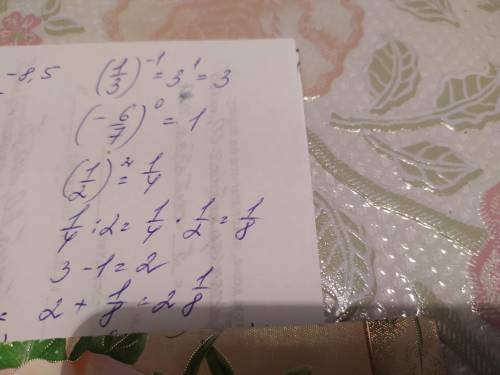 -8,5 (1/3)^-1 = 3^1 = 3
(-6/7)^0 = 1
(1/2)^2 = 1/4
1/4 : 2 = 1/4 · 1/2 = 1/8
3 - 1 = 2
= 2 + 1/8 = 2 1/8